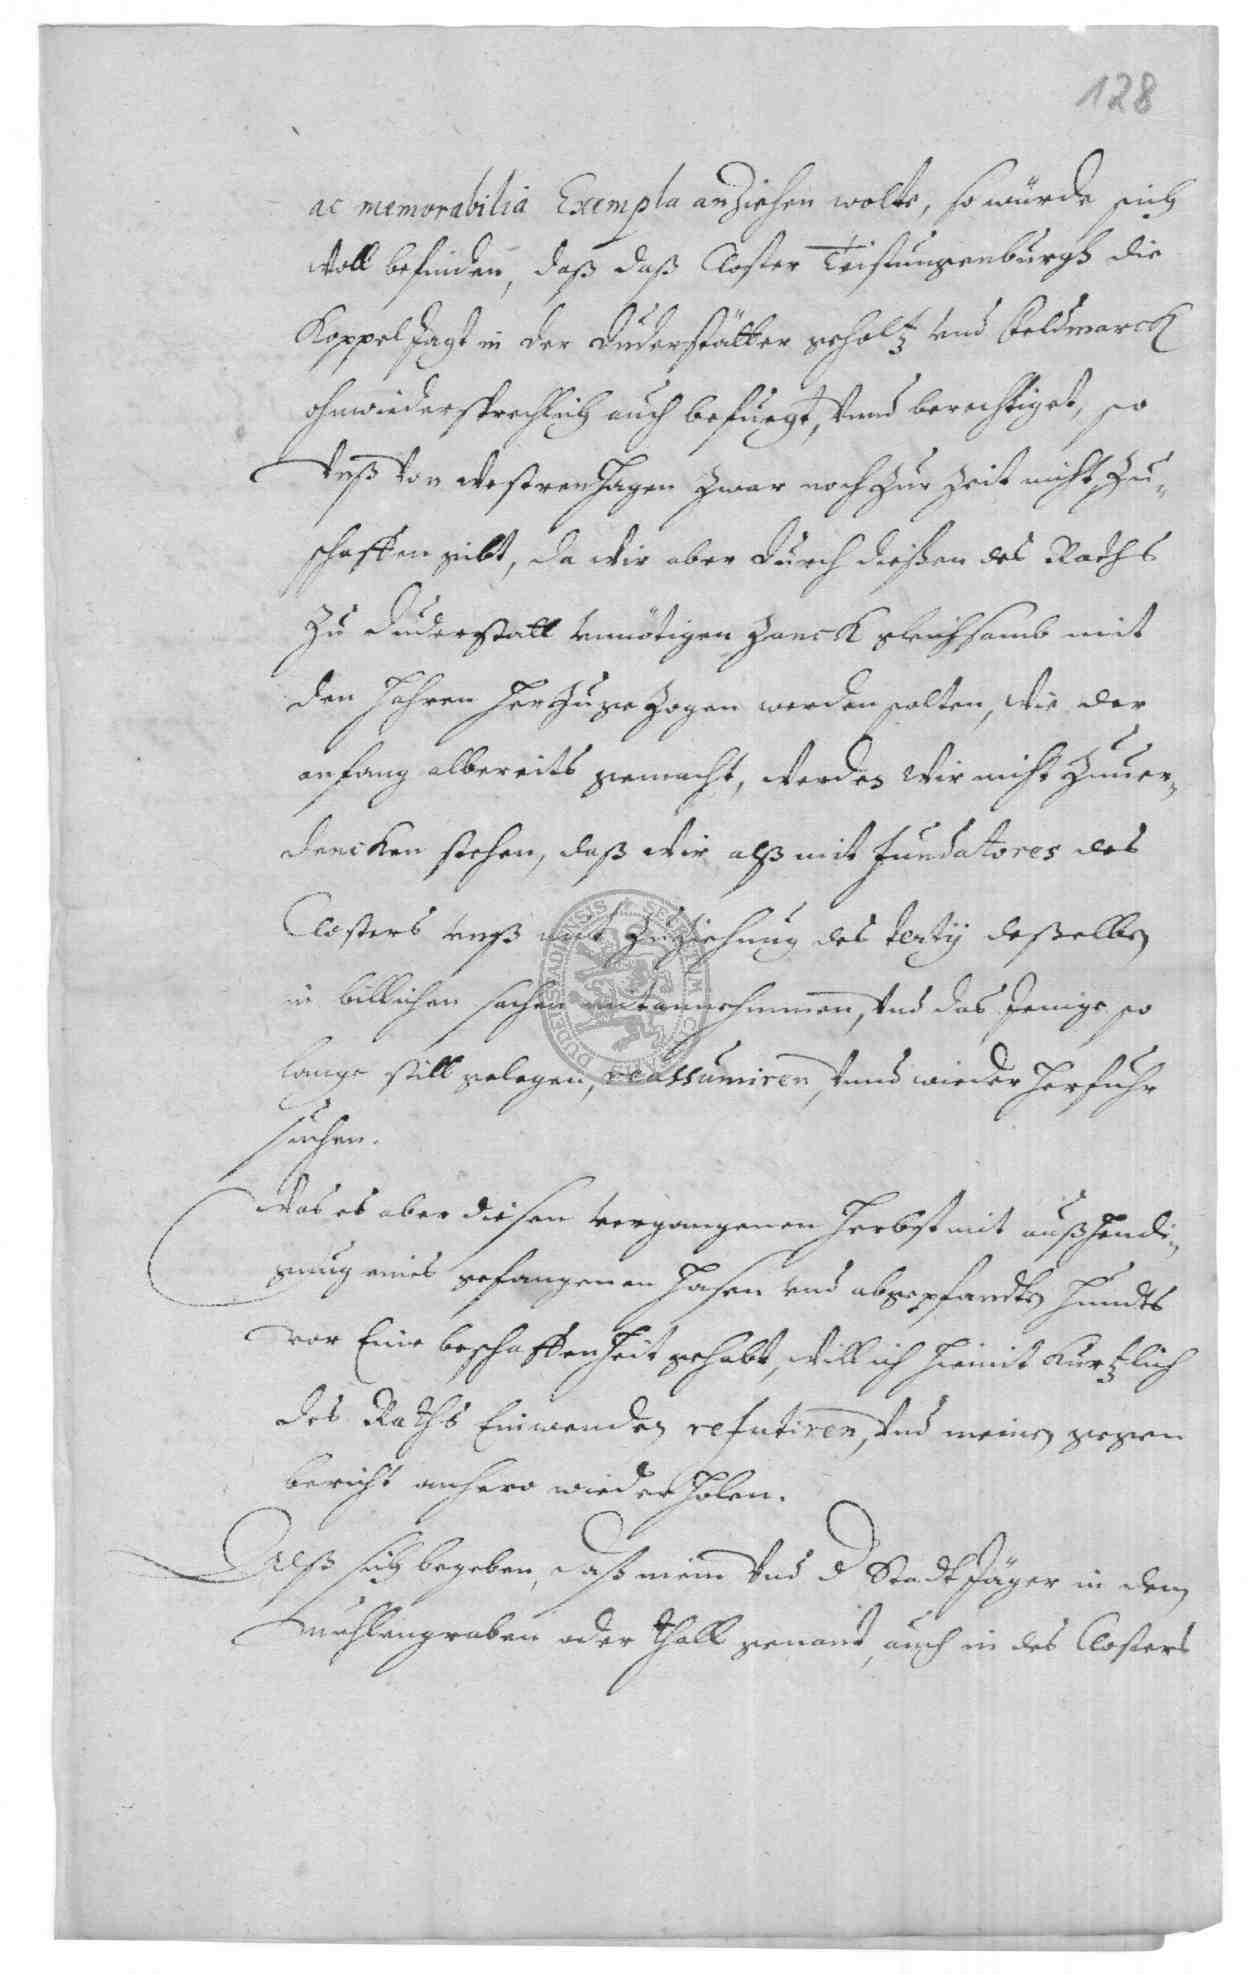 128
ac memorabilia Exempla anziehen wolte, so würde sich
woll befinden, daß daß Closter Teistungenburgk die
Koppel Jagt in der Duderstätter geholtz vnd Feldmarck
ohnwiedersprechlich auch befuegt, vnnd berechtiget, so
vnß von Westernhagen zwar noch zur Zeit nicht zu„
schaffen gibt, da wir aber durch dießen des Raths
zu Duderstatt vnnötigen Zanck gleichsamb mit
den Haren herzugezogen werden solten, wie der
anfang albereits gemacht, werden wir nicht zuuer„
dencken stehen, daß wir alß mit fundatores des
Closters vnß mit zuziehung des tertij deßelben
in billichen sachen mitannehmmen, vnd das Jenige so
lange still gelegen, reassumiren, vnnd wieder herfuhr
suchen.
Was es aber diesen vergangenen Herbst mit außhendi„
gung eines gefangenen Hasen vnd abgepfandten Hundts
vor Eine beschaffenheit gehabt, will ich hiemit kurtzlich
des Raths Einwenden refutiren, vnd meinen gegen
bericht anhero wiederholen.
Alß sich begeben, daß mein vnd d Stadt Jäger in dem
Muhlengraben oder thall genant, auch in des Closters
SECRETUM
DUDERSTADENSIS